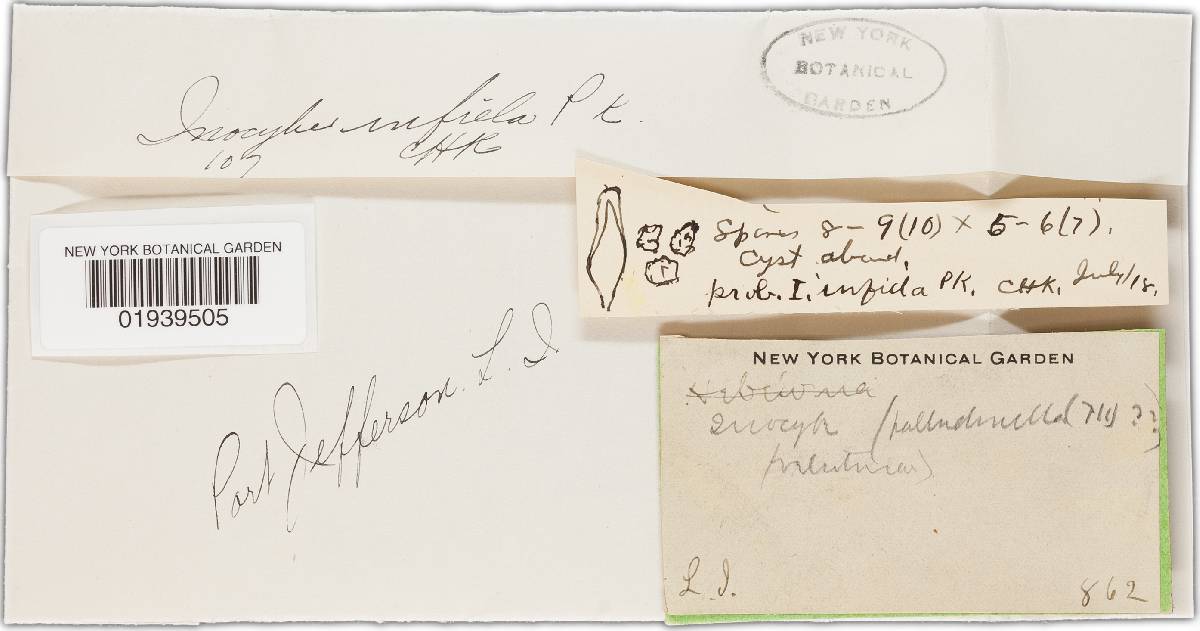 NEW YORK
BOTANICAL
GARDEN
Inocybe infida Pk.
107 CHK
Spores 8-9(10) × 5-6(7).
Cyst abund.
prob. I. infida PK. CHK. July/18.
NEW YORK BOTANICAL GARDEN
01939505
Port Jefferson. L. I
NEW YORK BOTANICAL GARDEN
Hebeloma
Inocybe (paludinella ??)
L. I.
862